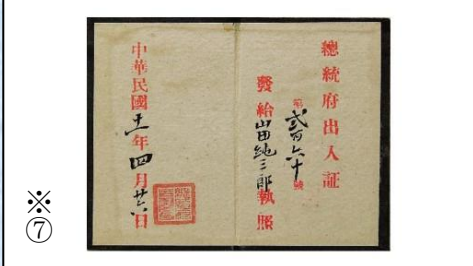 總統府出入証
第弍百六十號
發給山田純三郎執照
中華民國十一年四月廿六日
※
⑦